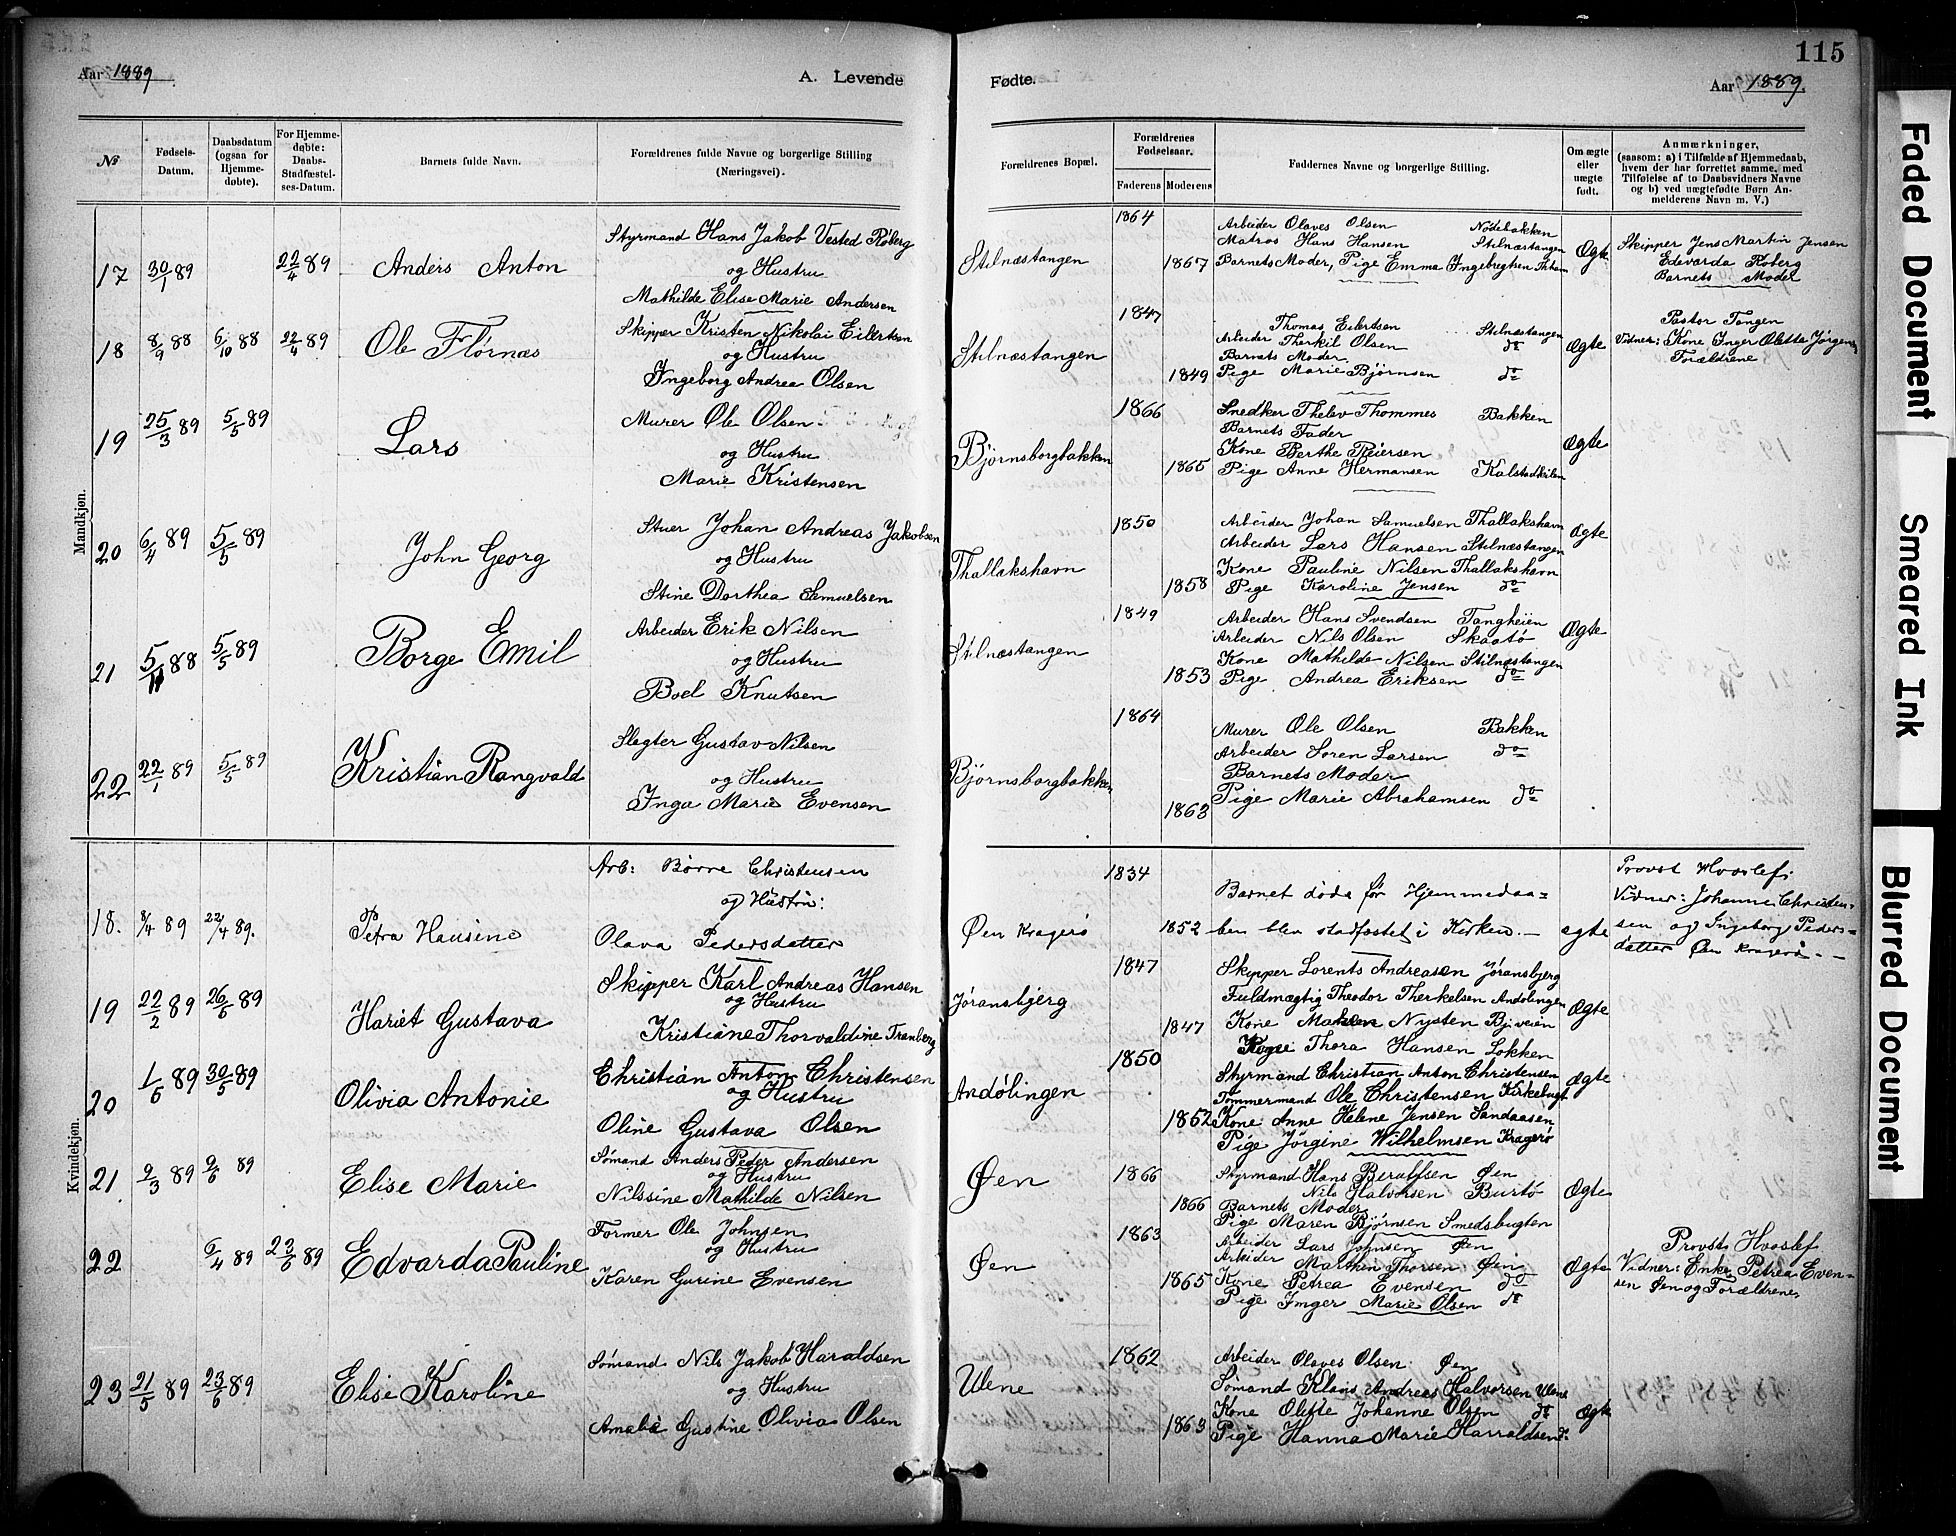 115
Aar 1889.
A. Levende
Fødte.
Aar 1889.
No
Fødsels-Datum.
Daabsdatum (ogsaa for Hjemmedøbte).
For Hjemmedøbte: Daabs-Stadfæstelses-Datum.
Barnets fulde Navn.
Forældrenes fulde Navne og borgerlige Stilling (Næringsvei).
Forældrenes Bopæl.
Forældrenes Fødselsaar.
Faderens
Moderens
Faddernes Navne og borgerlige Stilling.
Om ægte eller uægte født.
Anmærkninger, (saasom: a) i Tilfælde af Hjemmedaab, hvem der har forrettet samme, med Tilføielse af to Daabsvidners Navne og b) ved uægtefødte Børn Anmelderens Navn m. V.)
Mandkjøn.
17 30/1 89 22/4 89 Anders Anton
Styrmand Hans Jakob Vested Roberg
og Hustru
Mathilde Elise Marie Andersen
Stilnæstangen
1864
1867
Arbeider Olaves Olsen Nödebakken
Matros Hans Hansen Stilnæstangen
Barnets Moder, Pige Emma Ingebregtsen
Ægte
Skipper Jens Martin Jensen
Edvarda Roberg
Barnets Moder
18 8/9 88 6/10 88 22/4 89 Ole Flörnæs
Skipper Kristen Nikolai Eilertsen
og Hustru
Ingeborg Andrea Olsen
Stilnæstangen
1847
1849
Thomas Eilertsen Stilnæstangen
Arbeider Therkil Olsen do
Barnets Moder
Pige Marie Björnsen do
Ægte
Pastor Tangen
Vidner: Kone Inger Olette Jörgensen
Forældrene
19 25/3 89 5/5 89 Lars
Murer Ole Olsen
og Hustru
Marie Kristensen
Björnsborgbakken
1866
1865
Snedker Thelev Thommes Bakken
Barnets Fader
Kone Berthe Reiersen
Pige Anne Hermansen Kalstadkilen
Ægte
20 6/4 89 5/5 89 John Georg
Stuer Johan Andreas Jakobsen
og Hustru
Stine Dorthea Samuelsen
Thallakshavn
1850
1858
Arbeider Johan Samuelsen Thallakshavn
Arbeider Lars Hansen Stilnæstangen
Kone Pauline Nilsen Thallakshavn
Pige Karoline Jensen do
Ægte
21 5/11 88 5/5 89 Borge Emil
Arbeider Erik Nilsen
og Hustru
Boel Knutsen
Stilnæstangen
1849
1853
Arbeider Hans Svendsen Tangheien
Arbeider Nils Olsen Skaatö
Kone Mathilde Nilsen Stilnæstangen
Pige Andrea Eriksen do
Ægte
22 22/1 89 5/5 89 Kristian Rangvald
Slegter Gustav Nilsen
og Hustru
Inga Marie Evensen
Björnsborgbakken
1864
1863
Murer Ole Olsen Bakken
Arbeider Sören Larsen do
Barnets Moder
Pige Marie Abrahamsen do
Kvindekjøn.
18. 8/4 89 22/4 89. Petra Hansine
Arb: Börre Christensen
og Hustru:
Olava Pedersdatter
Øen Kragerö
1834
1852
Barnet döde för Hjemmedaa=
ben blev stadfæstet i Kirken. —
ægte
Provst Hvoslef;
Vidner: Johanne Christen-
sen og Ingeborg Peders=
datter Øen Kragerö. -
19 22/2 89 26/5 89 Hariet Gustava
Skipper Karl Andreas Hansen
og Hustru
Kristiane Thorvaldine Tranberg
Jöransbjerg
1847
1847
Skipper Lorents Andreasen Jöransbjerg
Fuldmægtig Theodor Therkelsen Andölingen
Kone Maren Nysten Bjveien
Pige Thora Hansen Lökken
Ægte
20 1/5 89 30/5 89 Olivia Antonie
Christian Anton Christensen
og Hustru
Oline Gustava Olsen
Andölingen
1850
1852
Styrmand Christian Anton Christensen
Tömmermand Ole Christensen Kirkebugt
Kone Anne Helene Jensen Sandaasen
Pige Jörgine Wilhelmsen Kragerö
Ægte
21 9/3 89 9/6 89 Elise Marie
Sömand Anders Peder Andersen
og Hustru
Nilssine Mathilde Nilsen
Øen
1866
1866
Styrmand Hans Berulfsen Øen
Nils Halvorsen Burtö
Barnets Moder
Pige Maren Björnsen Smedsbugten
Ægte
22 6/4 89 23/6 89 Edvarda Pauline
Former Ole Johnsen
og Hustru
Karen Gurine Evensen
Øen
1863
1865
Arbeider Lars Johnsen Øen
Arbeider Marthin Thorsen Øen
Kone Petrea Evensen do
Pige Inger Marie Olsen do
Ægte
Provst Hvoslef
Vidner: Enke Petrea Even-
sen Øen og Forældrene
23 21/5 89 23/6 89 Elise Karoline
Sömand Nils Jakob Haraldsen
og Hustru
Amalie Gustine Olivia Olsen
Ulene
1862
1863
Arbeider Olaves Olsen Øen
Sömand Klaus Andreas Halvorsen Ulene
Kone Olette Johanne Olsen do
Pige Hanna Marie Harraldsen do
Ægte
Faded Document
Smeared Ink
Blurred Document